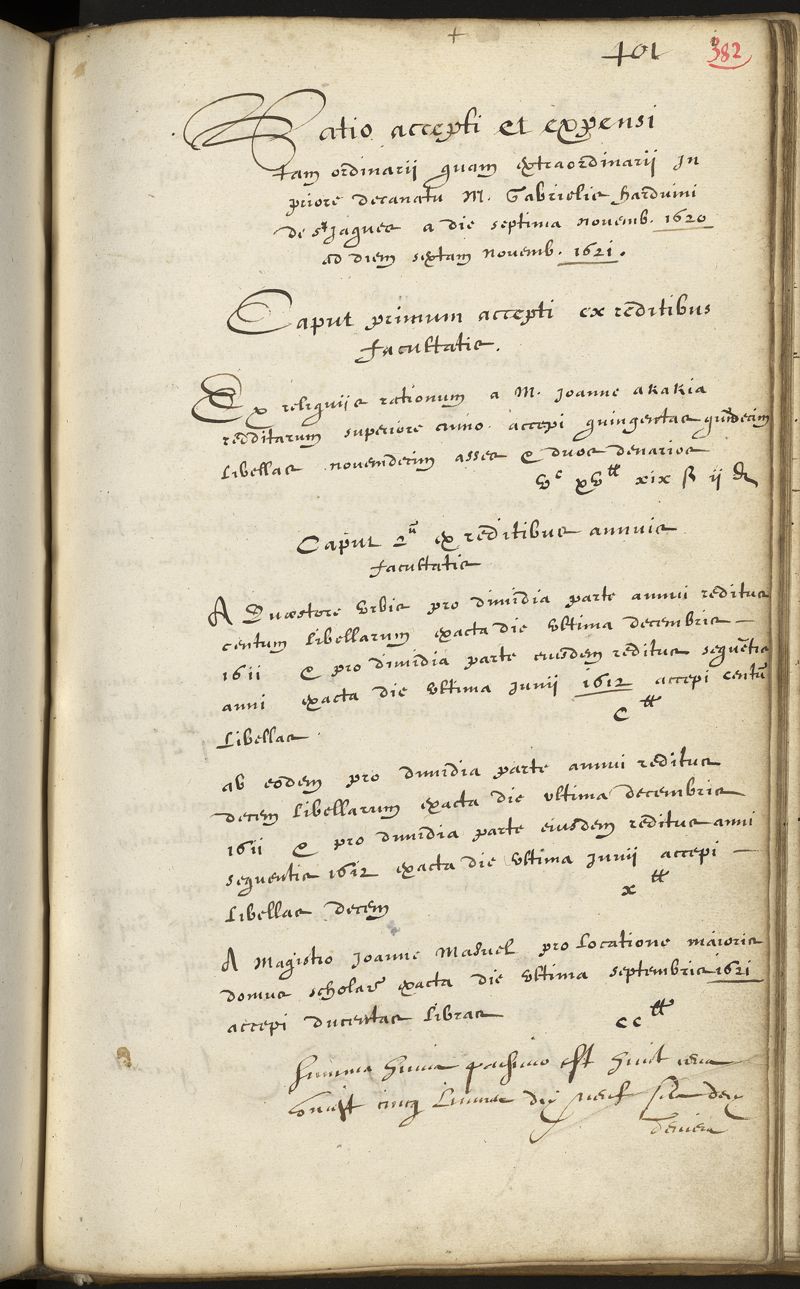 +
401 382
Ratio accepti et expensi
tam ordinarii quam extraordinarii in
priore decanatu M. Gabrielis Harduini
de St Jaques a die septima novemb. 1620
ad diem sextam novemb. 1621.
Caput primum accepti ex reditibus
facultatis.
Ex reliquiis rationum a M. Joanne akakia
redditarum superiore anno accepi quingentas quindecim
libellas novemdecim asses & duos denarios
vc xvtt xix ß ii d
Caput 2u ex reditibus annuis
facultatis
A Quæstore Urbis pro dimidia parte annui reditus
centum libellarum exacta die ultima decembris
1611 & pro dimidia parte eiusdem reditus sequētis
anni exacta die ultima junii 1612 accepi centū
libellas
Ctt
ab eodem pro dimidia parte annui reditus
decem libellarum exacta die ultima decembris
1611 & pro dimidia parte eiusdem reditus anni
sequentis 1612 exacta die ultima junii accepi
libellas decem
xtt
A Magistro Joanne Masuel pro locatione maioris
domus scholarū exacta die ultima septembris 1621
accepi ducentas libras
cctt
Summa huius est huict cens
cinq livres dix neuf deux
deniers